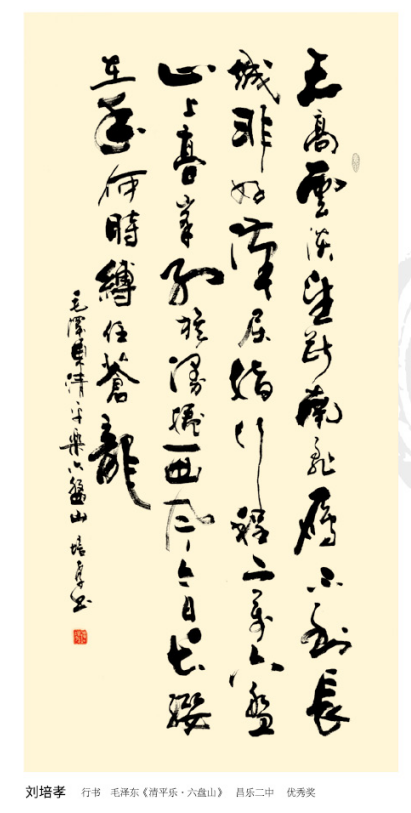 天高雲淡望斷南飛雁不到長
城非好漢屈指行程二萬六盤
山上高峯紅旗漫捲西風今日長纓
在手何時縛住蒼龍
毛澤東清平樂六盤山 培孝書
刘培孝 行书 毛泽东《清平乐·六盘山》 昌乐二中 优秀奖